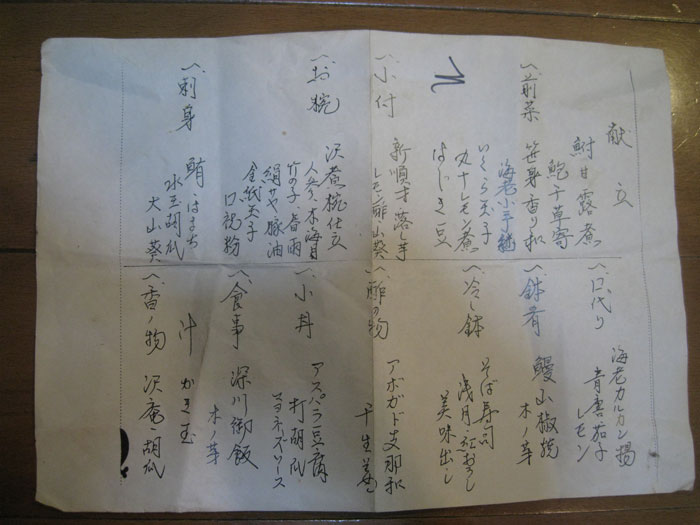 献立
〽前菜
鮒甘露煮
鮑千草寄
笹身香り和
海老小手毬
いくら玉子
丸十レモン煮
はじき豆
〽小付
新順才 落し芋
レモン酢 山葵
〽お椀
沢煮椀仕立
人参、木海月
竹の子、春雨
絹サヤ 豚油
金紙玉子
口胡粉
〽刺身
鮪、はまち
水玉胡瓜
大山葵
〽口代り
海老カルカン揚
青唐茄子
レモン
〽鉢肴
鰻山椒焼
木ノ芽
〽冷し鉢
そば寿司
浅月、紅おろし
美味出し
〽酢の物
アボガド支那和
干生姜
〽小丼
アスパラ豆腐
打胡瓜
マヨネーズソース
〽食事
深川御飯
木ノ芽
汁 かき玉
〽香ノ物
沢庵、胡瓜